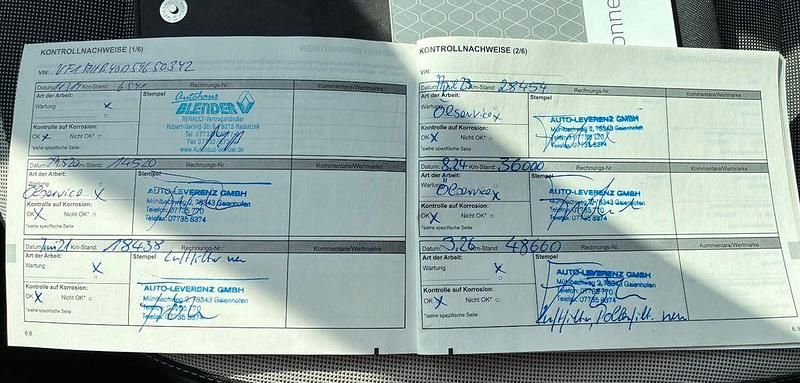 KONTROLLNACHWEISE (1/6)
VIN:
Datum: Km-Stand: Rechnungs-Nr.: Kommentare/Wertmarke
Art der Arbeit: Stempel
Wartung X
Autohaus
BLENDER
RENAULT-Vertragshändler
Robert-Gerwig-Str. 6, 78315 Radolfzell
Kontrolle auf Korrosion:
OK X Nicht OK*
www.Autohaus-Blender.de
*siehe spezifische Seite
Datum: Km-Stand: 14520 Rechnungs-Nr.: Kommentare/Wertmarke
Art der Arbeit: Stempel
Wartung
Ölservice X
AUTO-LEVERENZ GMBH
Mühlbachweg 2, 78343 Gaienhofen
Telefon: 07735 770
Telefax: 07735 8374
Kontrolle auf Korrosion:
OK X Nicht OK*
*siehe spezifische Seite
Datum: Juni 21 Km-Stand: 18438 Rechnungs-Nr.: Kommentare/Wertmarke
Art der Arbeit: Stempel Luftfilter neu
Wartung X
AUTO-LEVERENZ GMBH
Mühlbachweg 2, 78343 Gaienhofen
Telefon: 07735 770
Telefax: 07735 8374
Kontrolle auf Korrosion:
OK X Nicht OK*
*siehe spezifische Seite
6.8
KONTROLLNACHWEISE (2/6)
VIN:
Datum: Km-Stand: 28454 Rechnungs-Nr.: Kommentare/Wertmarke
Art der Arbeit: Stempel
Wartung
Ölservice X
AUTO-LEVERENZ GMBH
Mühlbachweg 2, 78343 Gaienhofen
Telefon: 07735 770
Telefax: 07735 8374
Kontrolle auf Korrosion:
OK X Nicht OK*
*siehe spezifische Seite
Datum: 8.24 Km-Stand: 36000 Rechnungs-Nr.: Kommentare/Wertmarke
Art der Arbeit: Stempel
Ölservice X
AUTO-LEVERENZ GMBH
Mühlbachweg 2, 78343 Gaienhofen
Telefon: 07735 770
Telefax: 07735 8374
Kontrolle auf Korrosion:
OK X Nicht OK*
*siehe spezifische Seite
Datum: 3.26 Km-Stand: 48600 Rechnungs-Nr.: Kommentare/Wertmarke
Art der Arbeit: Stempel
Wartung X
AUTO-LEVERENZ GMBH
Mühlbachweg 2, 78343 Gaienhofen
Telefon: 07735 770
Telefax: 07735 8374
Kontrolle auf Korrosion:
OK X Nicht OK*
*siehe spezifische Seite
Luftfilter, Pollenfilt. neu
6.9